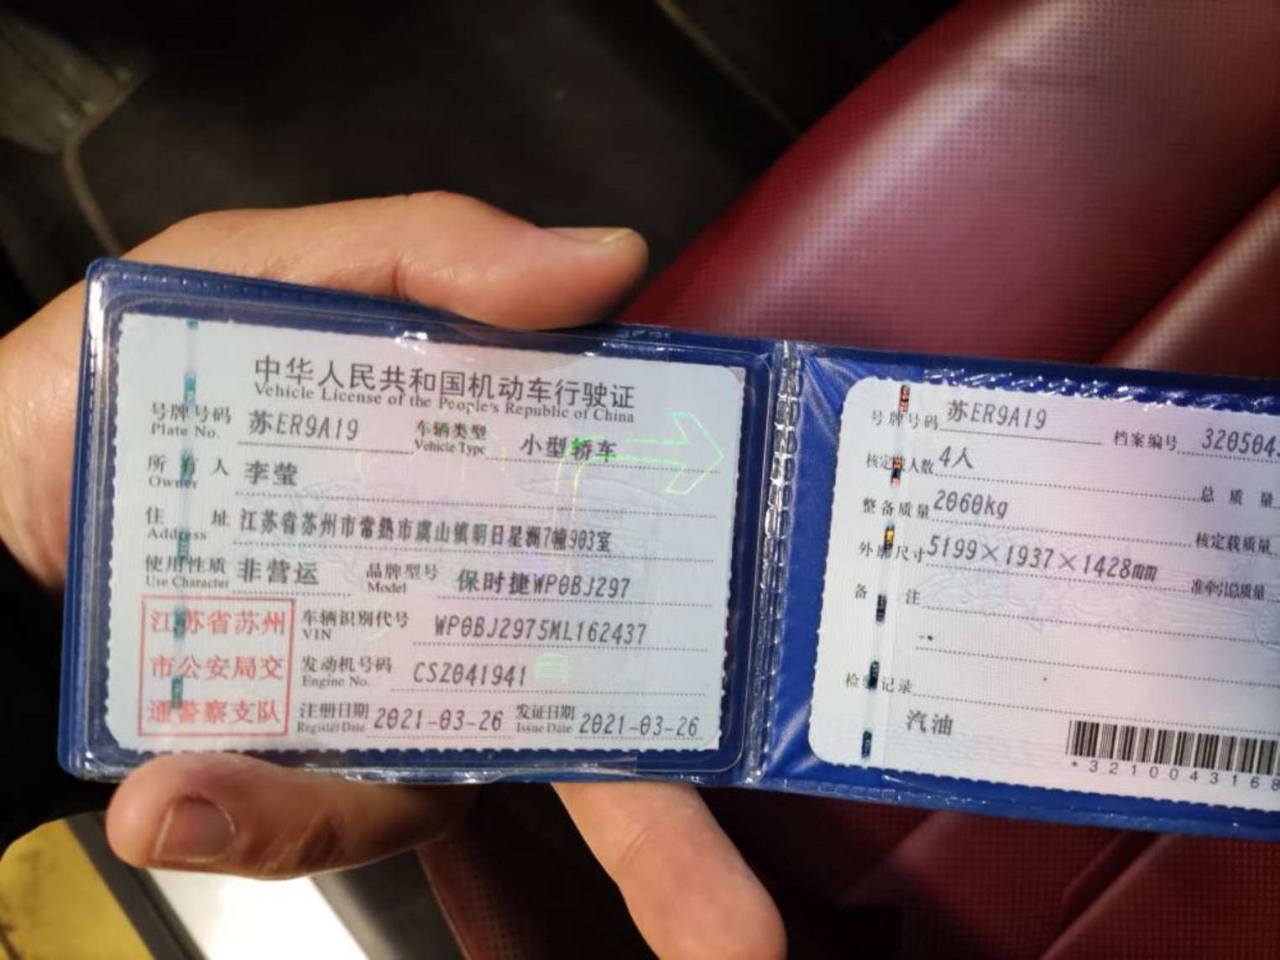 中华人民共和国机动车行驶证
Vehicle License of the People's Republic of China
号牌号码 苏ER9A19 车辆类型 小型轿车
Plate No. Vehicle Type
所有人 李莹
Owner
住址 江苏省苏州市常熟市虞山镇明日星洲7幢903室
Address
使用性质 非营运 品牌型号 保时捷WP0BJ297
Use Character Model
江苏省苏州
市公安局交
通警察支队
车辆识别代号 WP0BJ2975ML162437
VIN
发动机号码 CSZ041941
Engine No.
注册日期 2021-03-26 发证日期 2021-03-26
Register Date Issue Date
号牌号码 苏ER9A19 档案编号 320504
核定载人数 4人 总质量
整备质量 2060kg 核定载质量
外廓尺寸 5199×1937×1428mm 准牵引总质量
备注
检验记录
汽油
*321004316